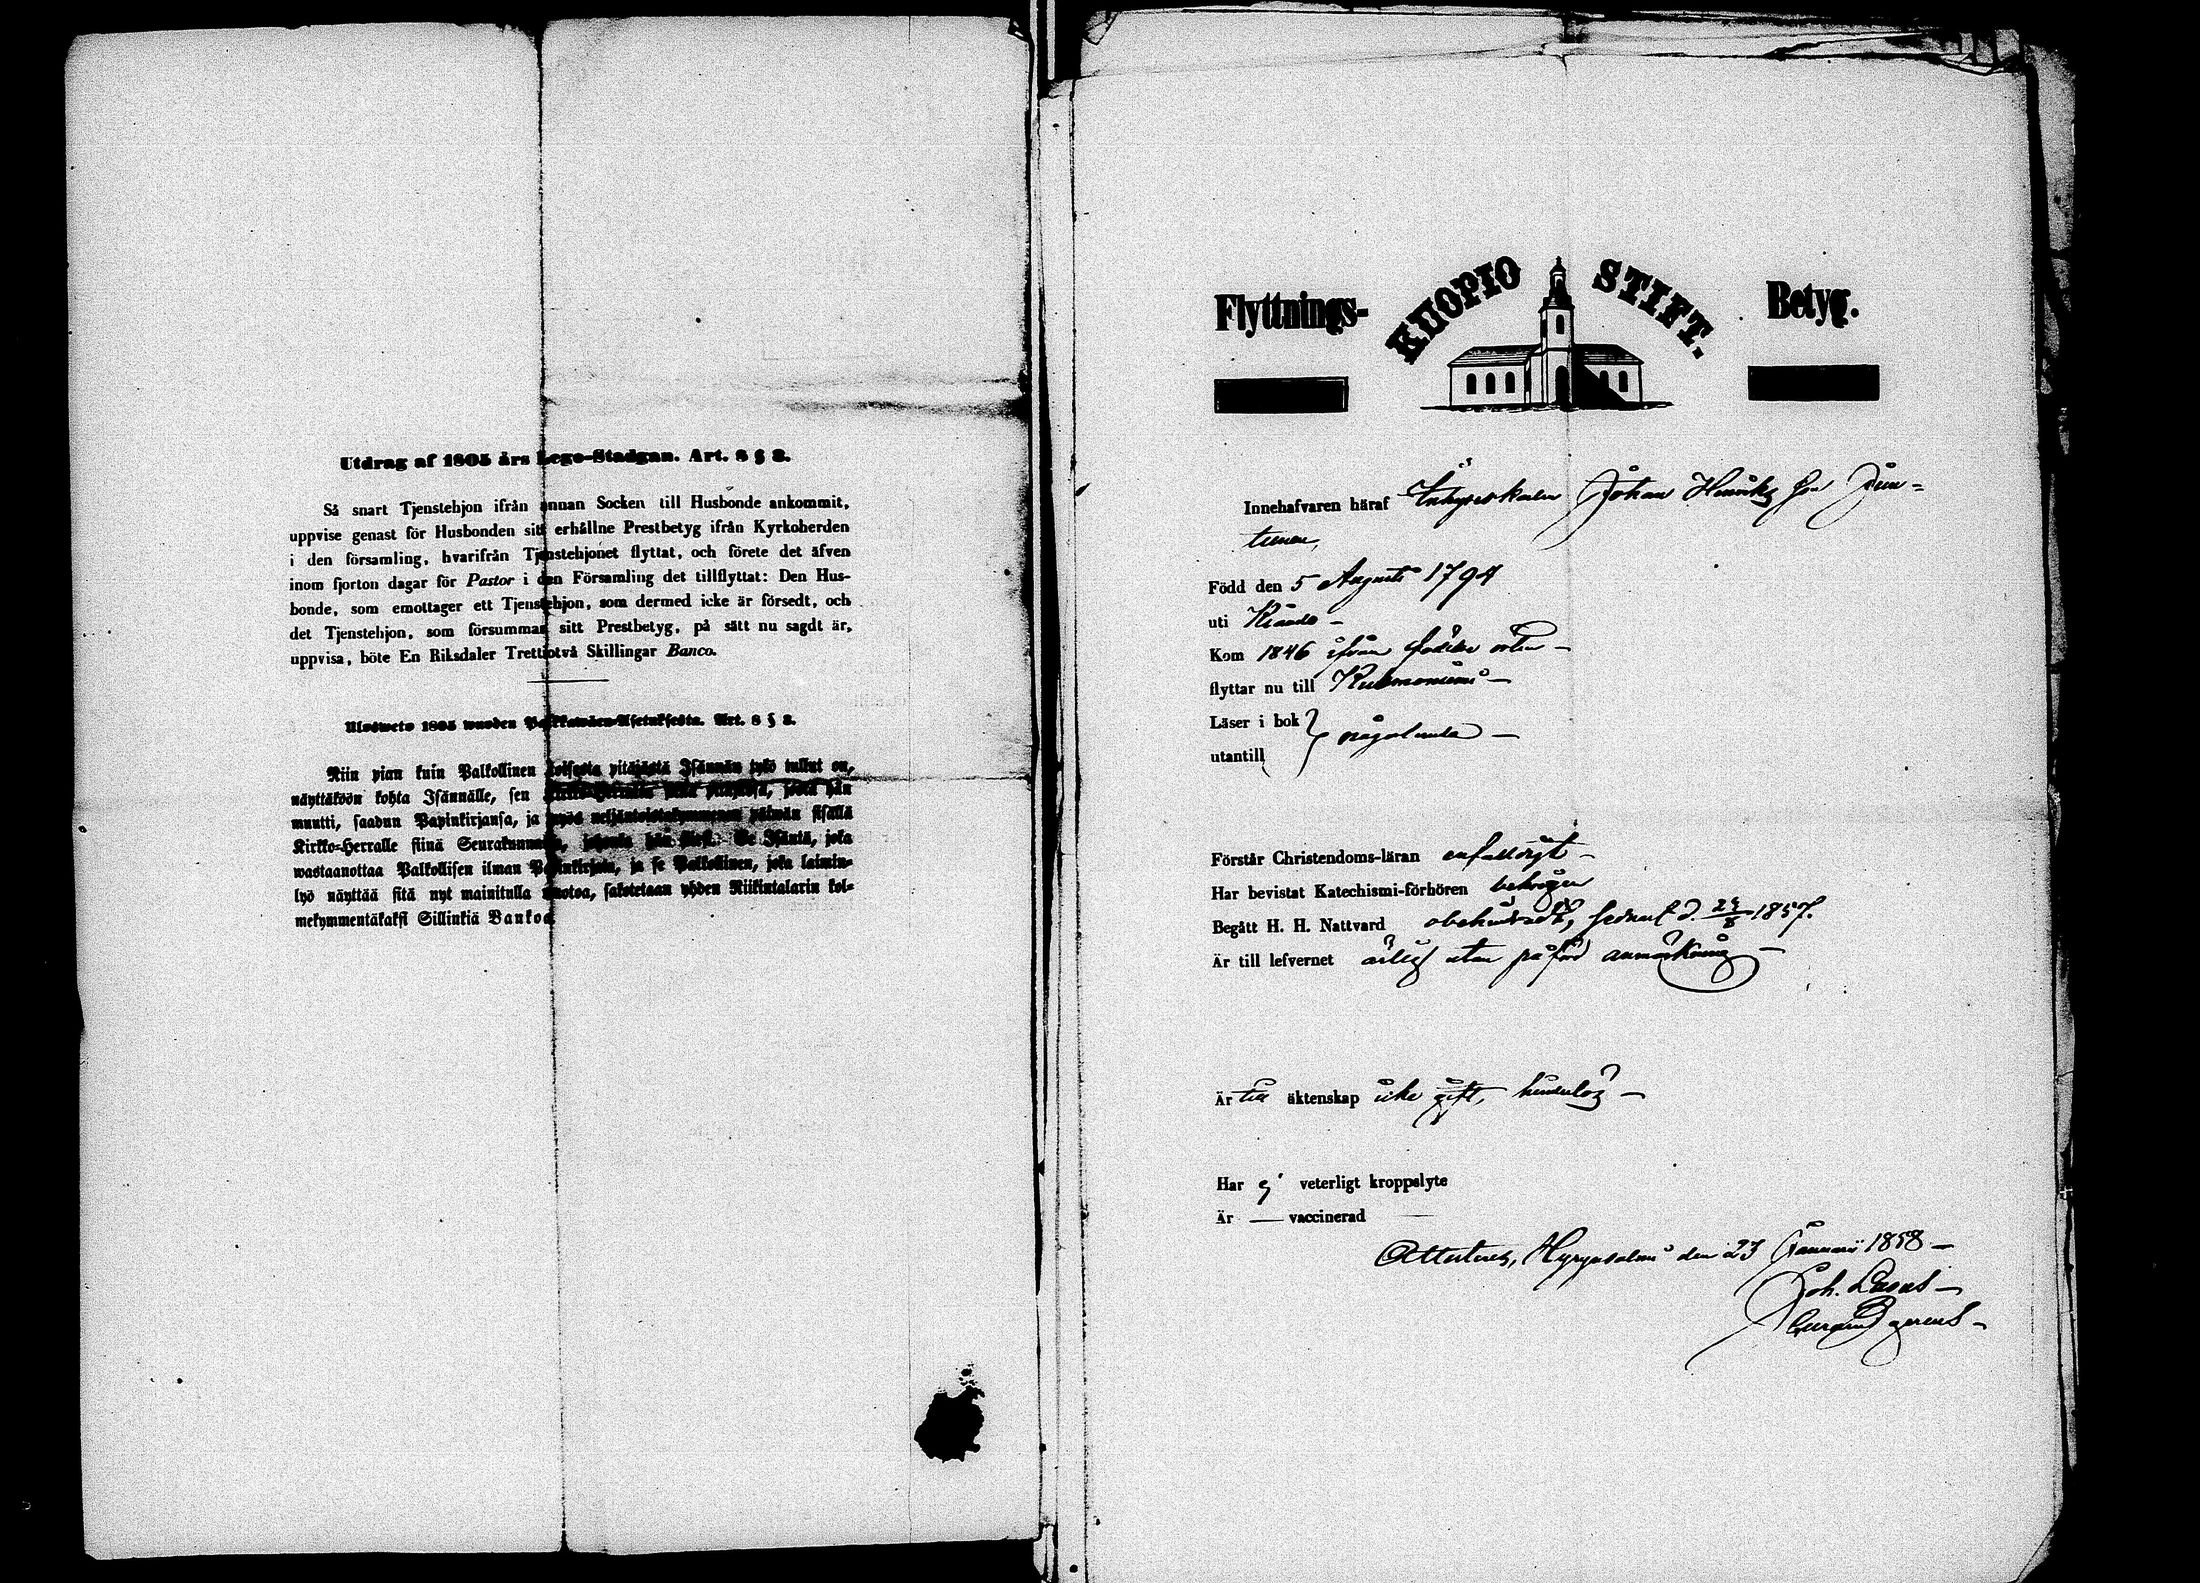 Utdrag af 1805 års Lego-Stadgan. Art. 8 § 2.
Så snart Tjenstehjon ifrån annan Socken till Husbonde ankommit,
uppvise genast för Husbonden sitt erhållne Prestbetyg ifrån Kyrkoherden
i den församling, hvarifrån Tjenstehjonet flyttat, och förete det äfven
inom fjorton dagar för Pastor i den Församling det tillflyttat: Den Hus-
bonde, som emottager ett Tjenstehjon, som dermed icke är försedt, och
det Tjenstehjon, som försummar sitt Prestbetyg, på sätt nu sagdt är,
uppvisa, böte En Riksdaler Trettiotvå Skillingar Banco.
Ulosweto 1805 wuoden Palkkawäen-Asetuksesta. Art. 8 § 2.
Niin pian kuin Palkollinen toisesta pitäjästä Isännän tykö tullut on,
näyttäköön kohta Isännälle, sen hän
muutti, saadun Papinkirjansa, ja myös neljäntoistakymmenen päiwän sisällä
Kirkko-Herralle siinä Seurakunnassa, johonka hän Se Isäntä, joka
wastaanottaa Palkollisen ilman Papinkirjata, ja se Palkollinen, joka laimin-
lyö näyttää sitä nyt mainitulla muotoa, sakotetaan yhden Riikintalarin kol-
mekymmentäkaksi Sillinkiä Bankoa
Flyttnings- KUOPIO STIFT. Betyg.
Innehafvaren häraf Inhyseskarlen Johan Henriks son Jun-
tunen,
Född den 5 Augusti 1794
uti
Kom 1846 ifrån födelse orten –
flyttar nu till Kuhmoniemi –
Läser i bok } någorlunda –
utantill
Förstår Christendoms-läran enfaldigt –
Har bevistat Katechismi-förhören behörigen
Begått H. H. Nattvard obehindradt, sednast d. 1857.
Är till lefvernet ärlig utan påförd anmärkning –
Är till äktenskap icke gift, hinderlös –
Har ej veterligt kroppslyte
Är — vaccinerad
Attesteras, Hyrynsalmi den 23 Januari 1858 –
Joh.
gerens –